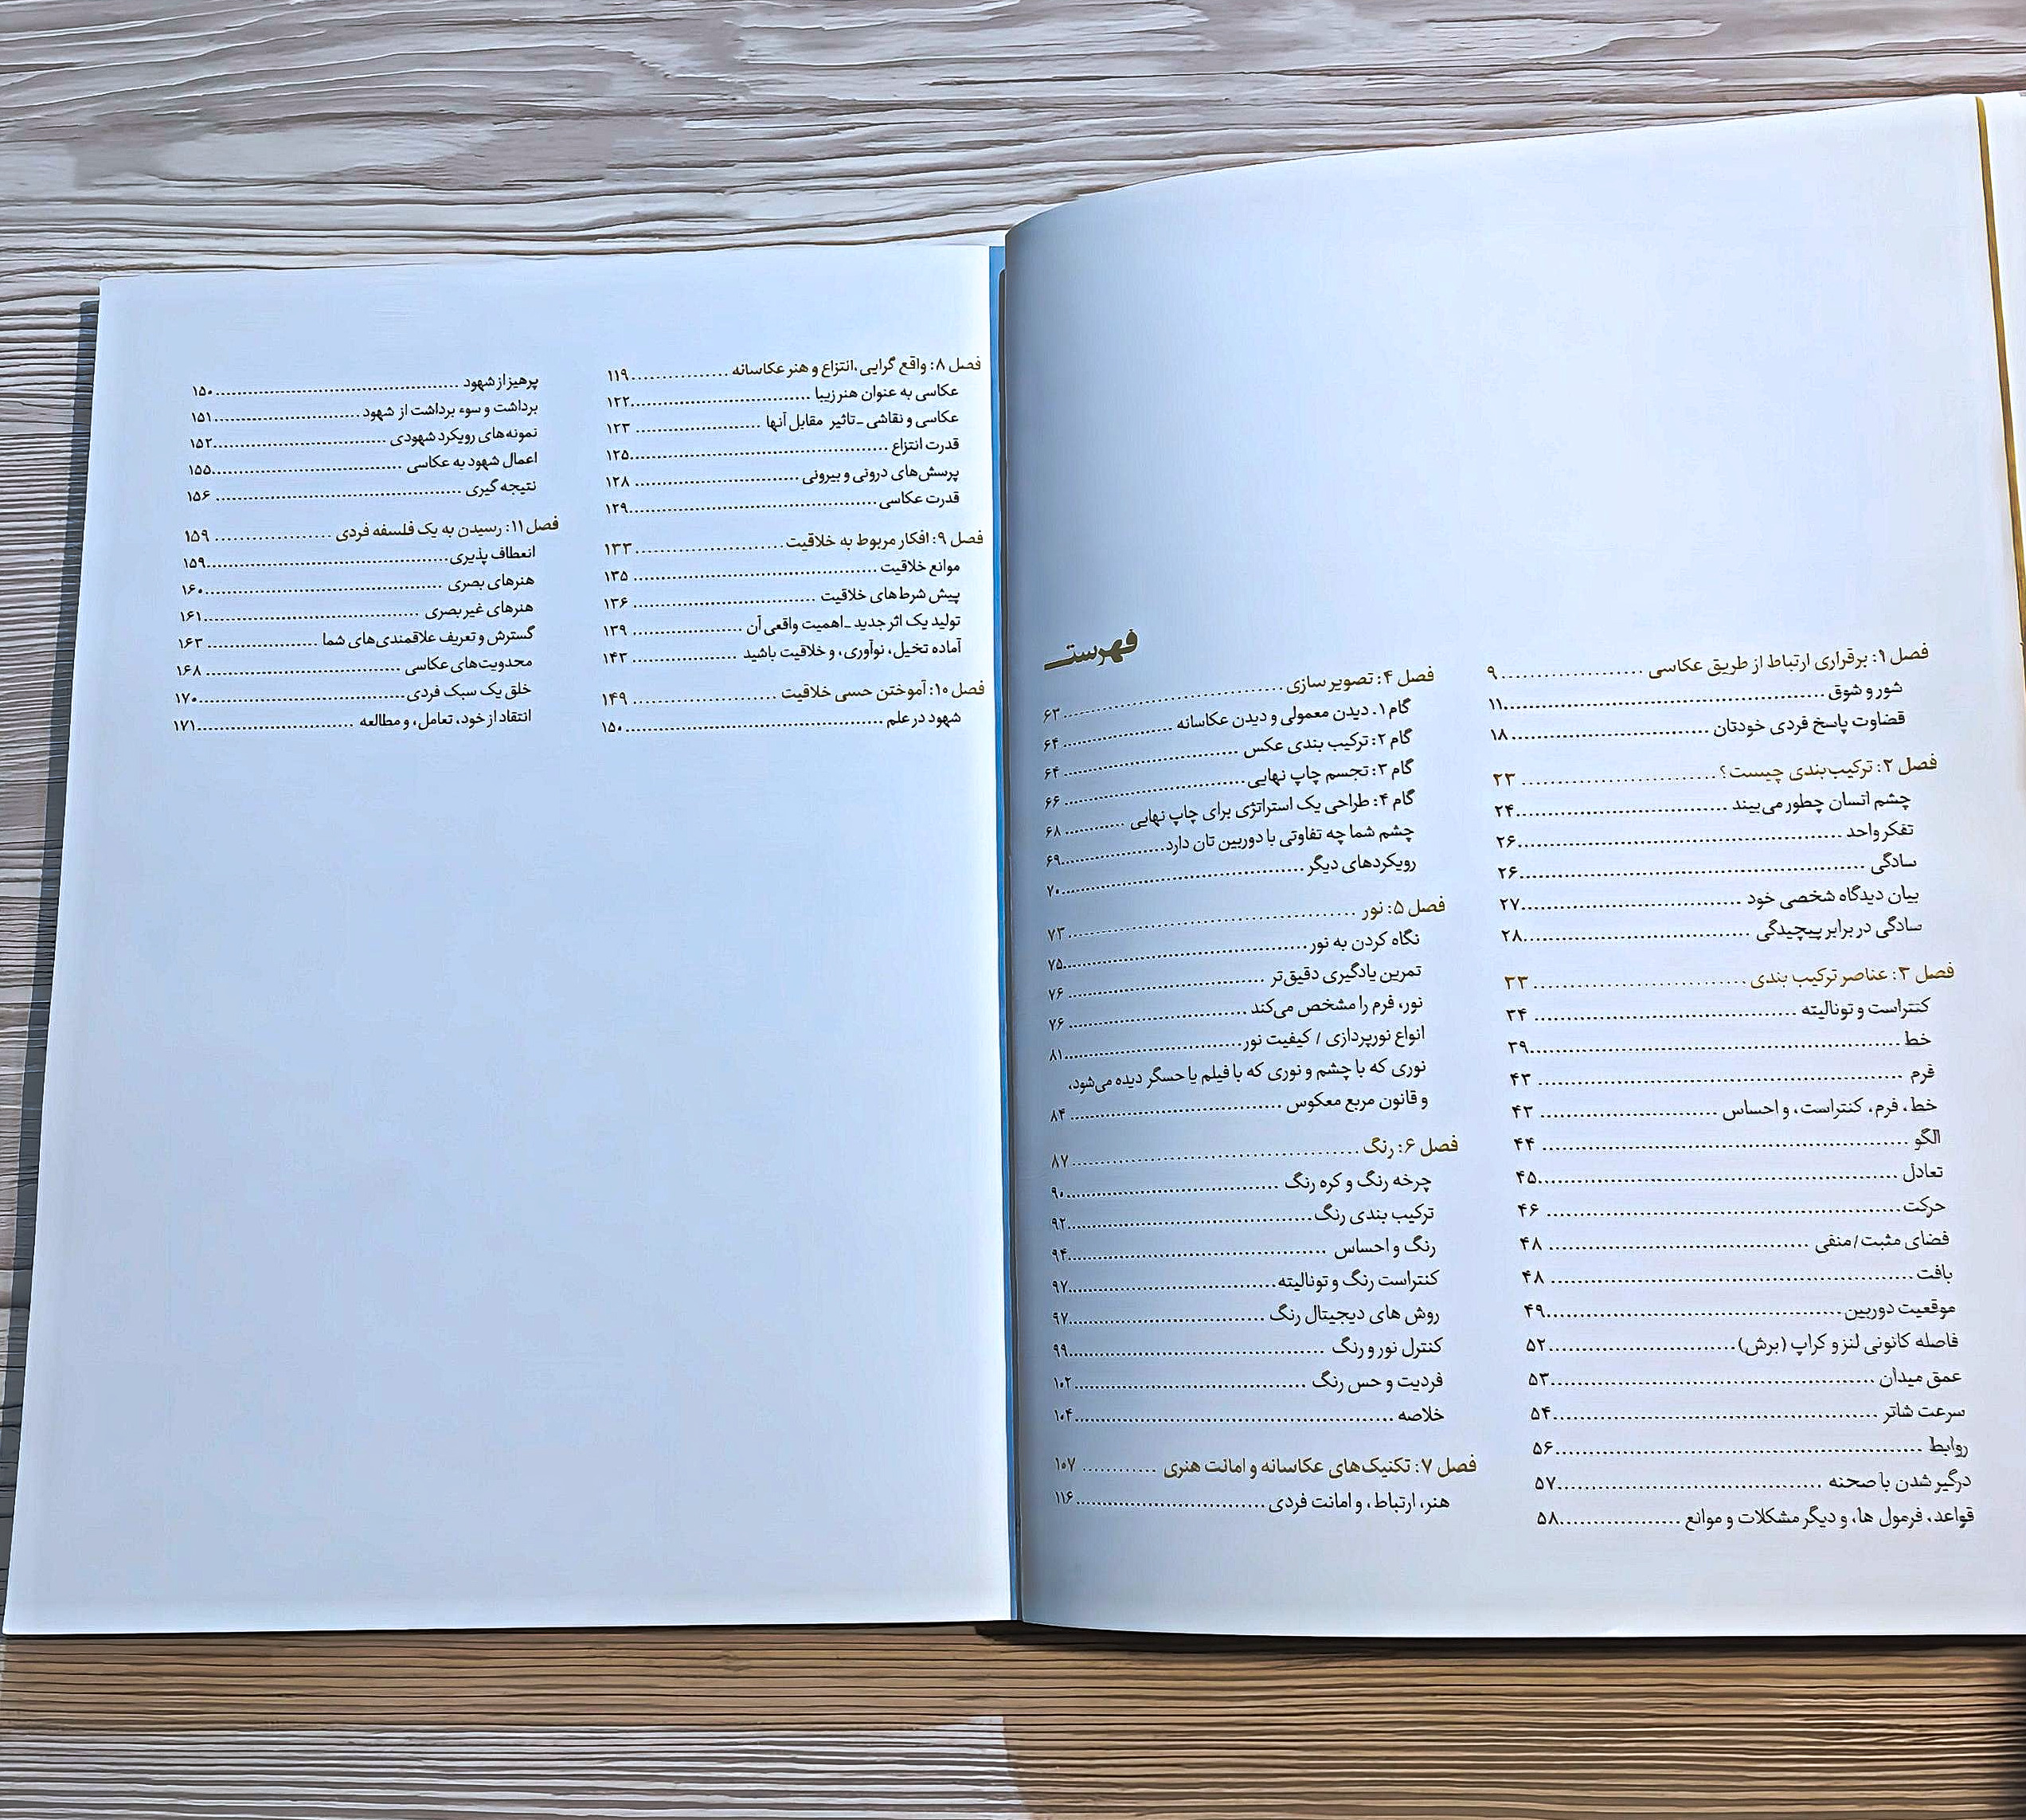 فهرست
فصل ۱: برقراری ارتباط از طریق عکاسی ........ ۹
شور و شوق ........ ۱۱
قضاوت پاسخ فردی خودتان ........ ۱۸
فصل ۲: ترکیب‌بندی چیست؟ ........ ۲۳
چشم انسان چطور می‌بیند ........ ۲۴
تفکر واحد ........ ۲۶
سادگی ........ ۲۶
بیان دیدگاه شخصی خود ........ ۲۷
سادگی در برابر پیچیدگی ........ ۲۸
فصل ۳: عناصر ترکیب بندی ........ ۳۳
کنتراست و تونالیته ........ ۳۴
خط ........ ۳۹
فرم ........ ۴۳
خط، فرم، کنتراست، و احساس ........ ۴۳
الگو ........ ۴۴
تعادل ........ ۴۵
حرکت ........ ۴۶
فضای مثبت/منفی ........ ۴۸
بافت ........ ۴۸
موقعیت دوربین ........ ۴۹
فاصله کانونی لنز و کراپ (برش) ........ ۵۲
عمق میدان ........ ۵۳
سرعت شاتر ........ ۵۴
روابط ........ ۵۶
درگیر شدن با صحنه ........ ۵۷
قواعد، فرمول ها، و دیگر مشکلات و موانع ........ ۵۸
فصل ۴: تصویر سازی ........ ۶۳
گام ۱. دیدن معمولی و دیدن عکاسانه ........ ۶۴
گام ۲: ترکیب بندی عکس ........ ۶۴
گام ۳: تجسم چاپ نهایی ........ ۶۶
گام ۴: طراحی یک استراتژی برای چاپ نهایی ........ ۶۸
چشم شما چه تفاوتی با دوربین تان دارد ........ ۶۹
رویکردهای دیگر ........ ۷۰
فصل ۵: نور ........ ۷۳
نگاه کردن به نور ........ ۷۵
تمرین یادگیری دقیق‌تر ........ ۷۶
نور، فرم را مشخص می‌کند ........ ۷۶
انواع نورپردازی / کیفیت نور ........ ۸۱
نوری که با چشم و نوری که با فیلم یا حسگر دیده می‌شود،
و قانون مربع معکوس ........ ۸۴
فصل ۶: رنگ ........ ۸۷
چرخه رنگ و کره رنگ ........ ۹۰
ترکیب بندی رنگ ........ ۹۲
رنگ و احساس ........ ۹۴
کنتراست رنگ و تونالیته ........ ۹۷
روش های دیجیتال رنگ ........ ۹۷
کنترل نور و رنگ ........ ۹۹
فردیت و حس رنگ ........ ۱۰۲
خلاصه ........ ۱۰۴
فصل ۷: تکنیک‌های عکاسانه و امانت هنری ........ ۱۰۷
هنر، ارتباط، و امانت فردی ........ ۱۱۶
فصل ۸: واقع گرایی،انتزاع و هنر عکاسانه ........ ۱۱۹
عکاسی به عنوان هنر زیبا ........ ۱۲۲
عکاسی و نقاشی -تاثیر مقابل آنها ........ ۱۲۳
قدرت انتزاع ........ ۱۲۵
پرسش‌های درونی و بیرونی ........ ۱۲۸
قدرت عکاسی ........ ۱۲۹
فصل ۹: افکار مربوط به خلاقیت ........ ۱۳۳
موانع خلاقیت ........ ۱۳۵
پیش شرط‌های خلاقیت ........ ۱۳۶
تولید یک اثر جدید -اهمیت واقعی آن ........ ۱۳۹
آماده تخیل، نوآوری، و خلاقیت باشید ........ ۱۴۳
فصل ۱۰: آموختن حسی خلاقیت ........ ۱۴۹
شهود در علم ........ ۱۵۰
پرهیز از شهود ........ ۱۵۰
برداشت و سوء برداشت از شهود ........ ۱۵۱
نمونه‌های رویکرد شهودی ........ ۱۵۲
اعمال شهود به عکاسی ........ ۱۵۵
نتیجه گیری ........ ۱۵۶
فصل ۱۱: رسیدن به یک فلسفه فردی ........ ۱۵۹
انعطاف پذیری ........ ۱۵۹
هنرهای بصری ........ ۱۶۰
هنرهای غیر بصری ........ ۱۶۱
گسترش و تعریف علاقمندی‌های شما ........ ۱۶۳
محدویت‌های عکاسی ........ ۱۶۸
خلق یک سبک فردی ........ ۱۷۰
انتقاد از خود، تعامل، و مطالعه ........ ۱۷۱